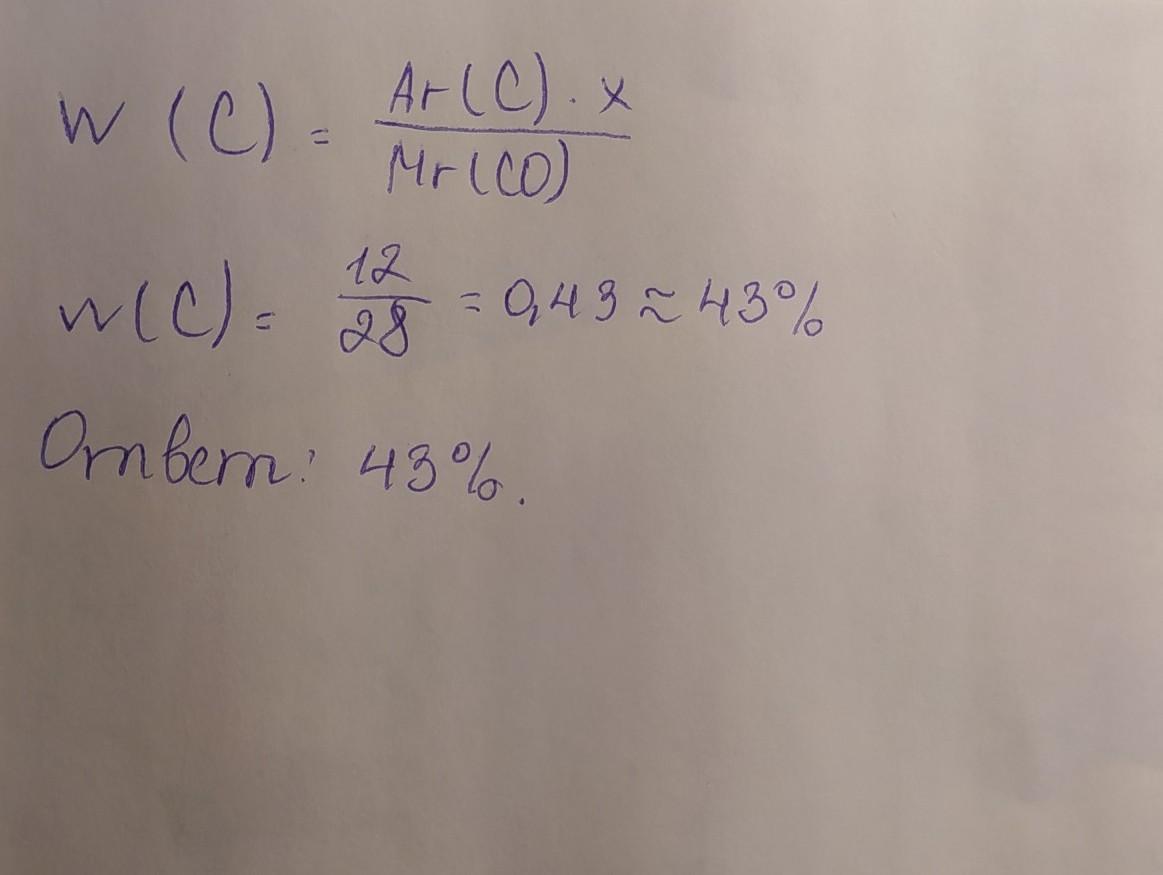 W (C) = Ar(C) · x / Mr(CO)
w(C) = 12 / 28 = 0,43 ≈ 43%
Ответ: 43%.